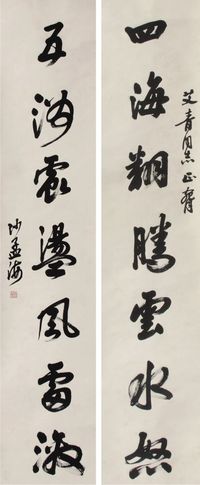 四海翻騰雲水怒
艾青同志正腕
五洲震盪風雷激
沙孟海